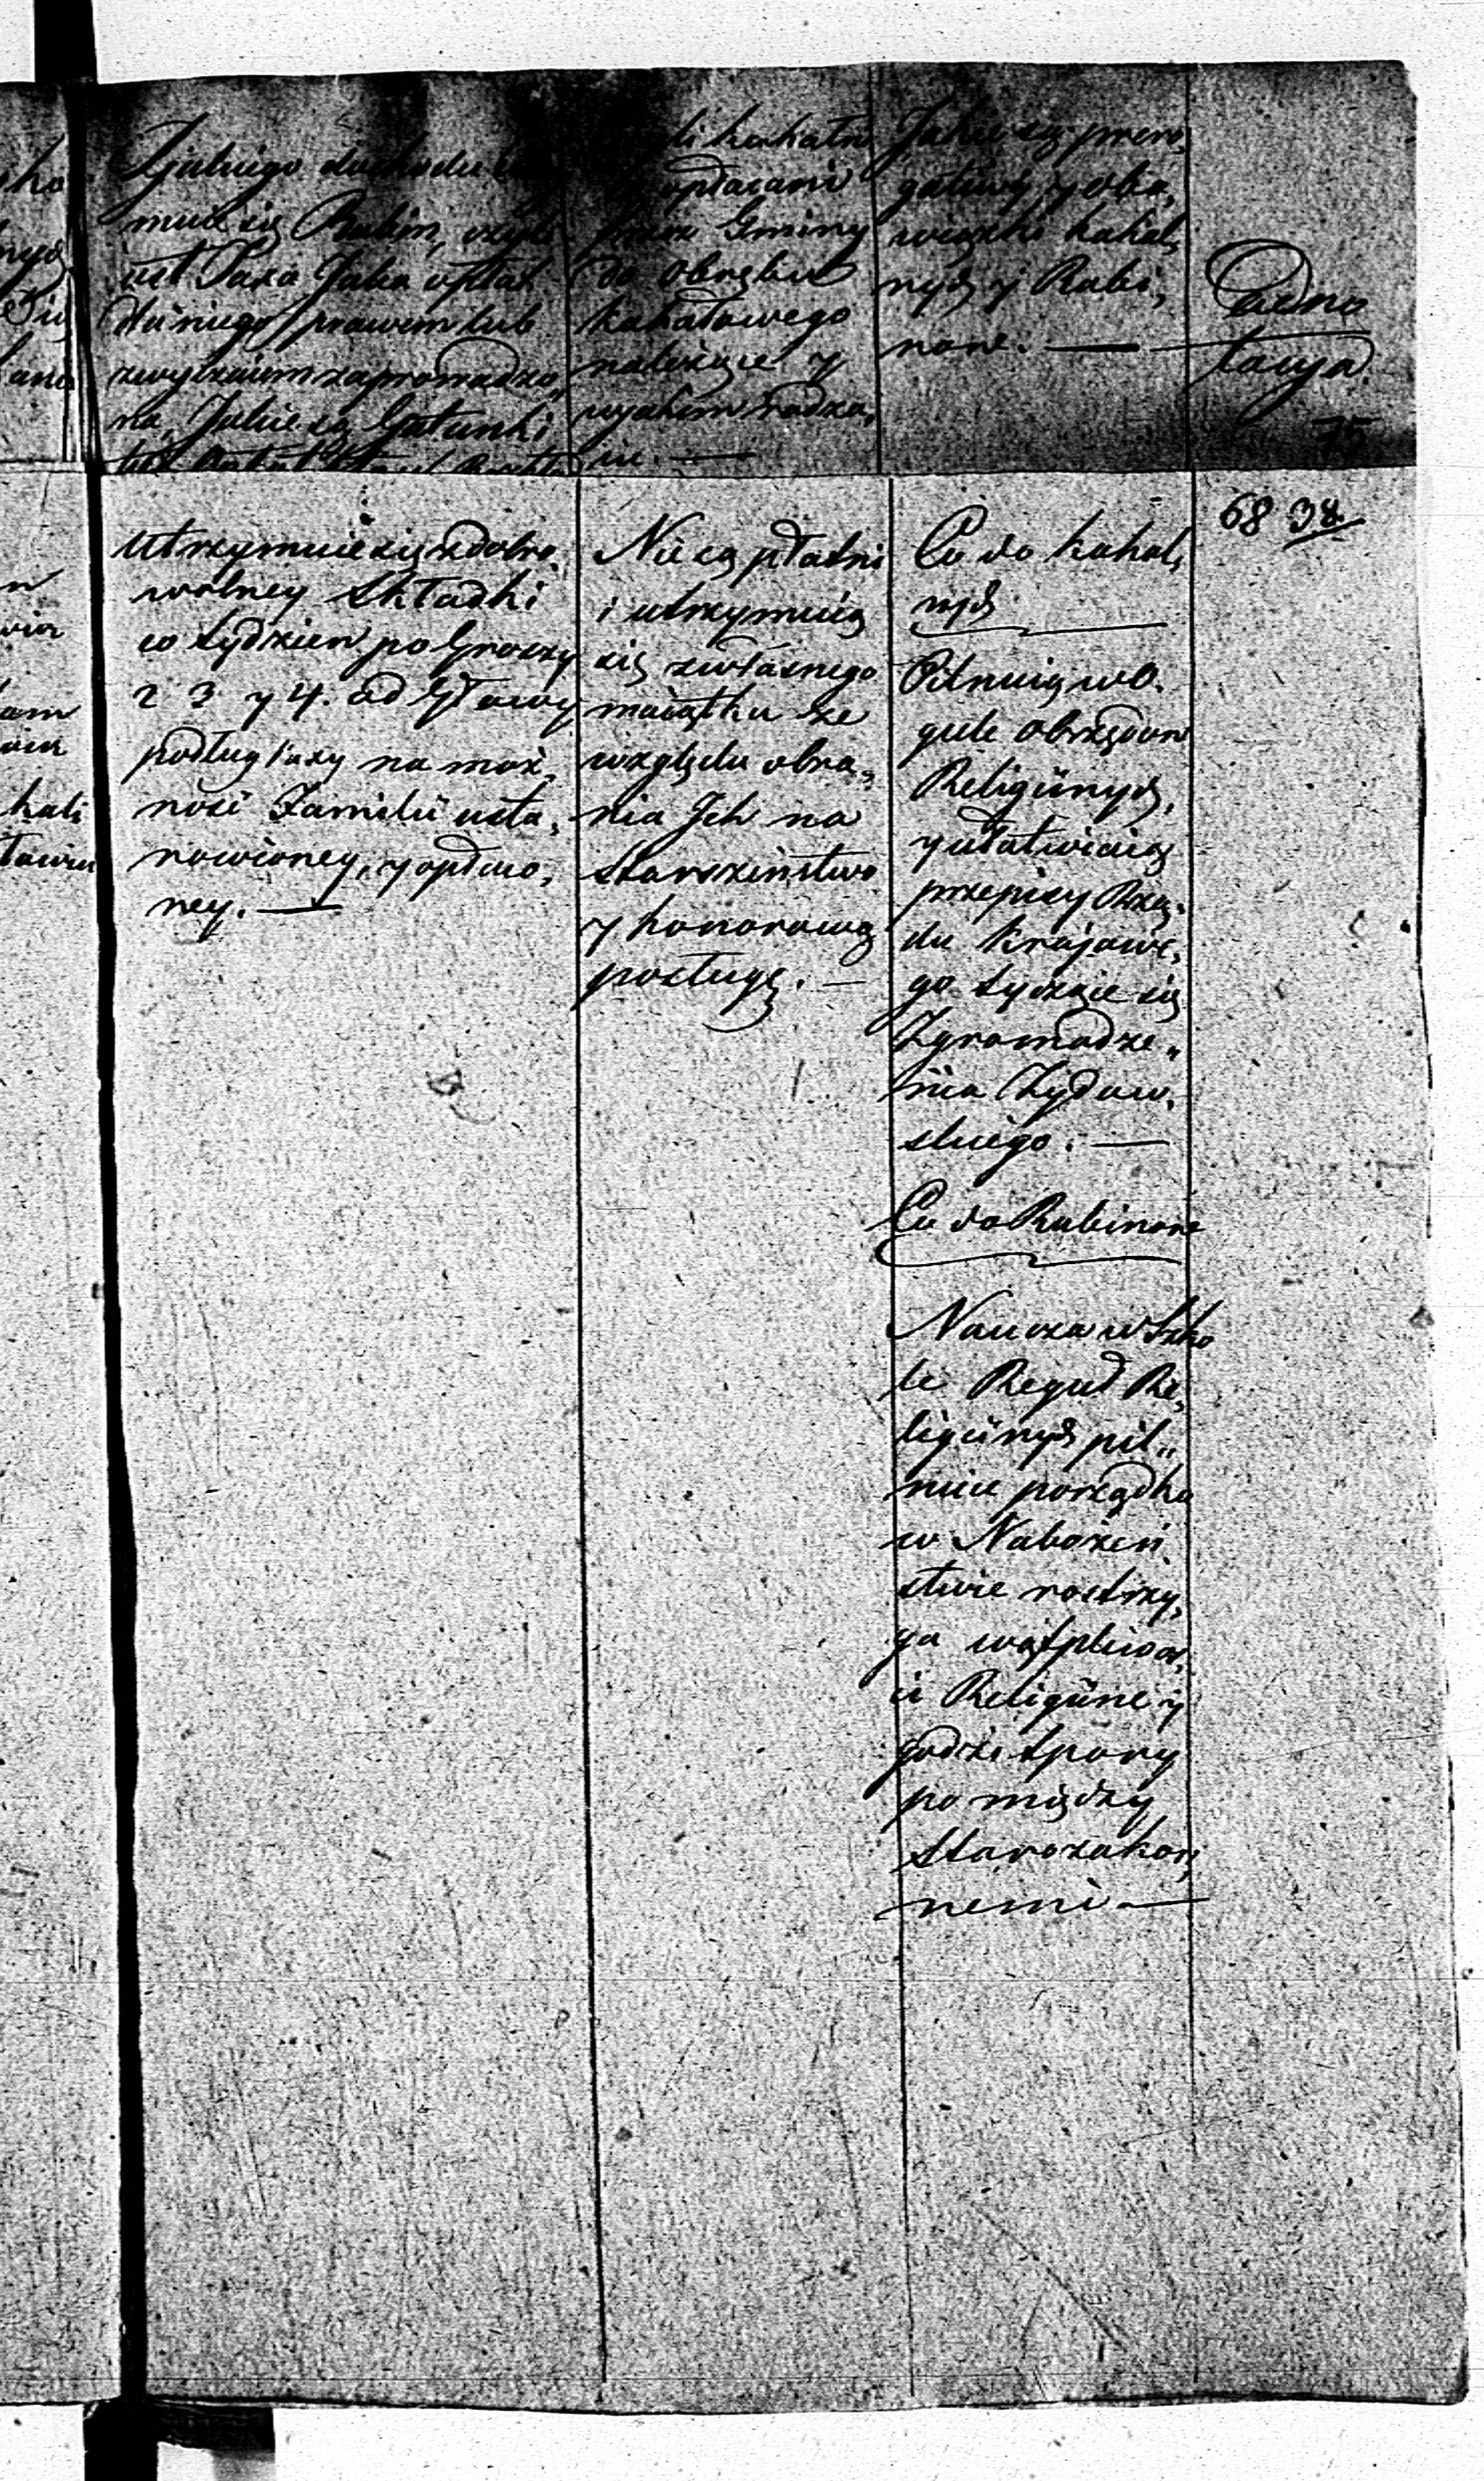 Z jakiego dochodu
muie się Rabin, czyli
iest Taxa Jaka opłat
dla niego prawem lub
zwyczaiem zaprowadzo„
na, Jakie są Gatunki
li kahaln
opłacani
przez Gminy
do obrębu
kahałowego
należące y
w jakim rodza„
iu. —
Jakie są prero„
gatiwy y obo„
wiązki kahal„
nych y Rabi„
now. —
Adno
tacya.
75
68 38.
Utrzymuie się z dobro„
wolney Składki
co tydzien po Groszy
2 3 y 4. od Głowy
podług taxy na moż„
ność Familii usta„
nowioney, y
ney. —
Nie są płatni
i utrzymuią
się z własnego
maiątku ze
względu obra„
nia Jch na
Starszeństwo
y honorową
posługę. —
Co do kahal„
nych
Pilnuią wo„
gule obrzędow
Religiinych,
y ułatwiaią
przepisy Rzą„
du krajowe„
go tyczące się
Zgromadze„
nia Żydow„
skiego. —
Co do Rabinow
Naucza w Szko
le Reguł Re„
ligiinych pil„
nuie porządku
w Nabożeń
stwie rostrzy„
ga wątpliwoś„
ci Religiine y
godzi Spory
pomiędzy
Starozakon„
nemi —